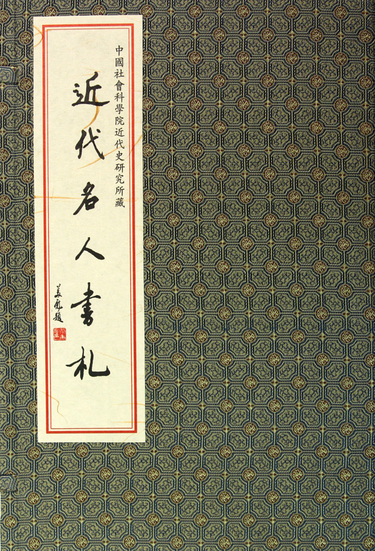 中國社會科學院近代史研究所藏
近代名人書札